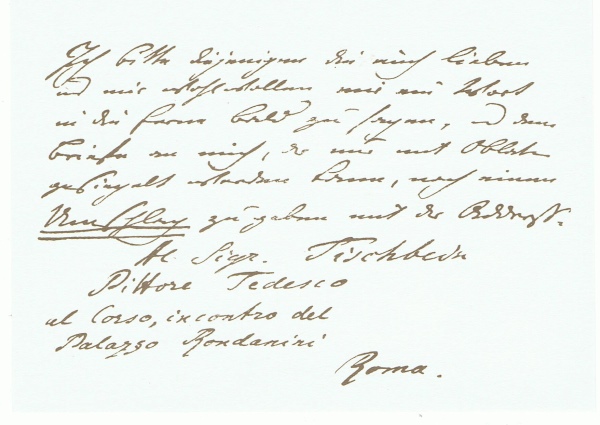 Ich bitte diejenigen die mich lieben
und mir wohlwollen mir ein Wort
in die Ferne bald zu sagen, und dem
Briefe an mich, der nur mit Oblaten
gesiegelt werden kann, noch einen
Umschlag zu geben mit der Addresse.
Al Sigr. Tischbein
Pittore Tedesco
al Corso, incontro del
Palazzo Rondanini
Roma.